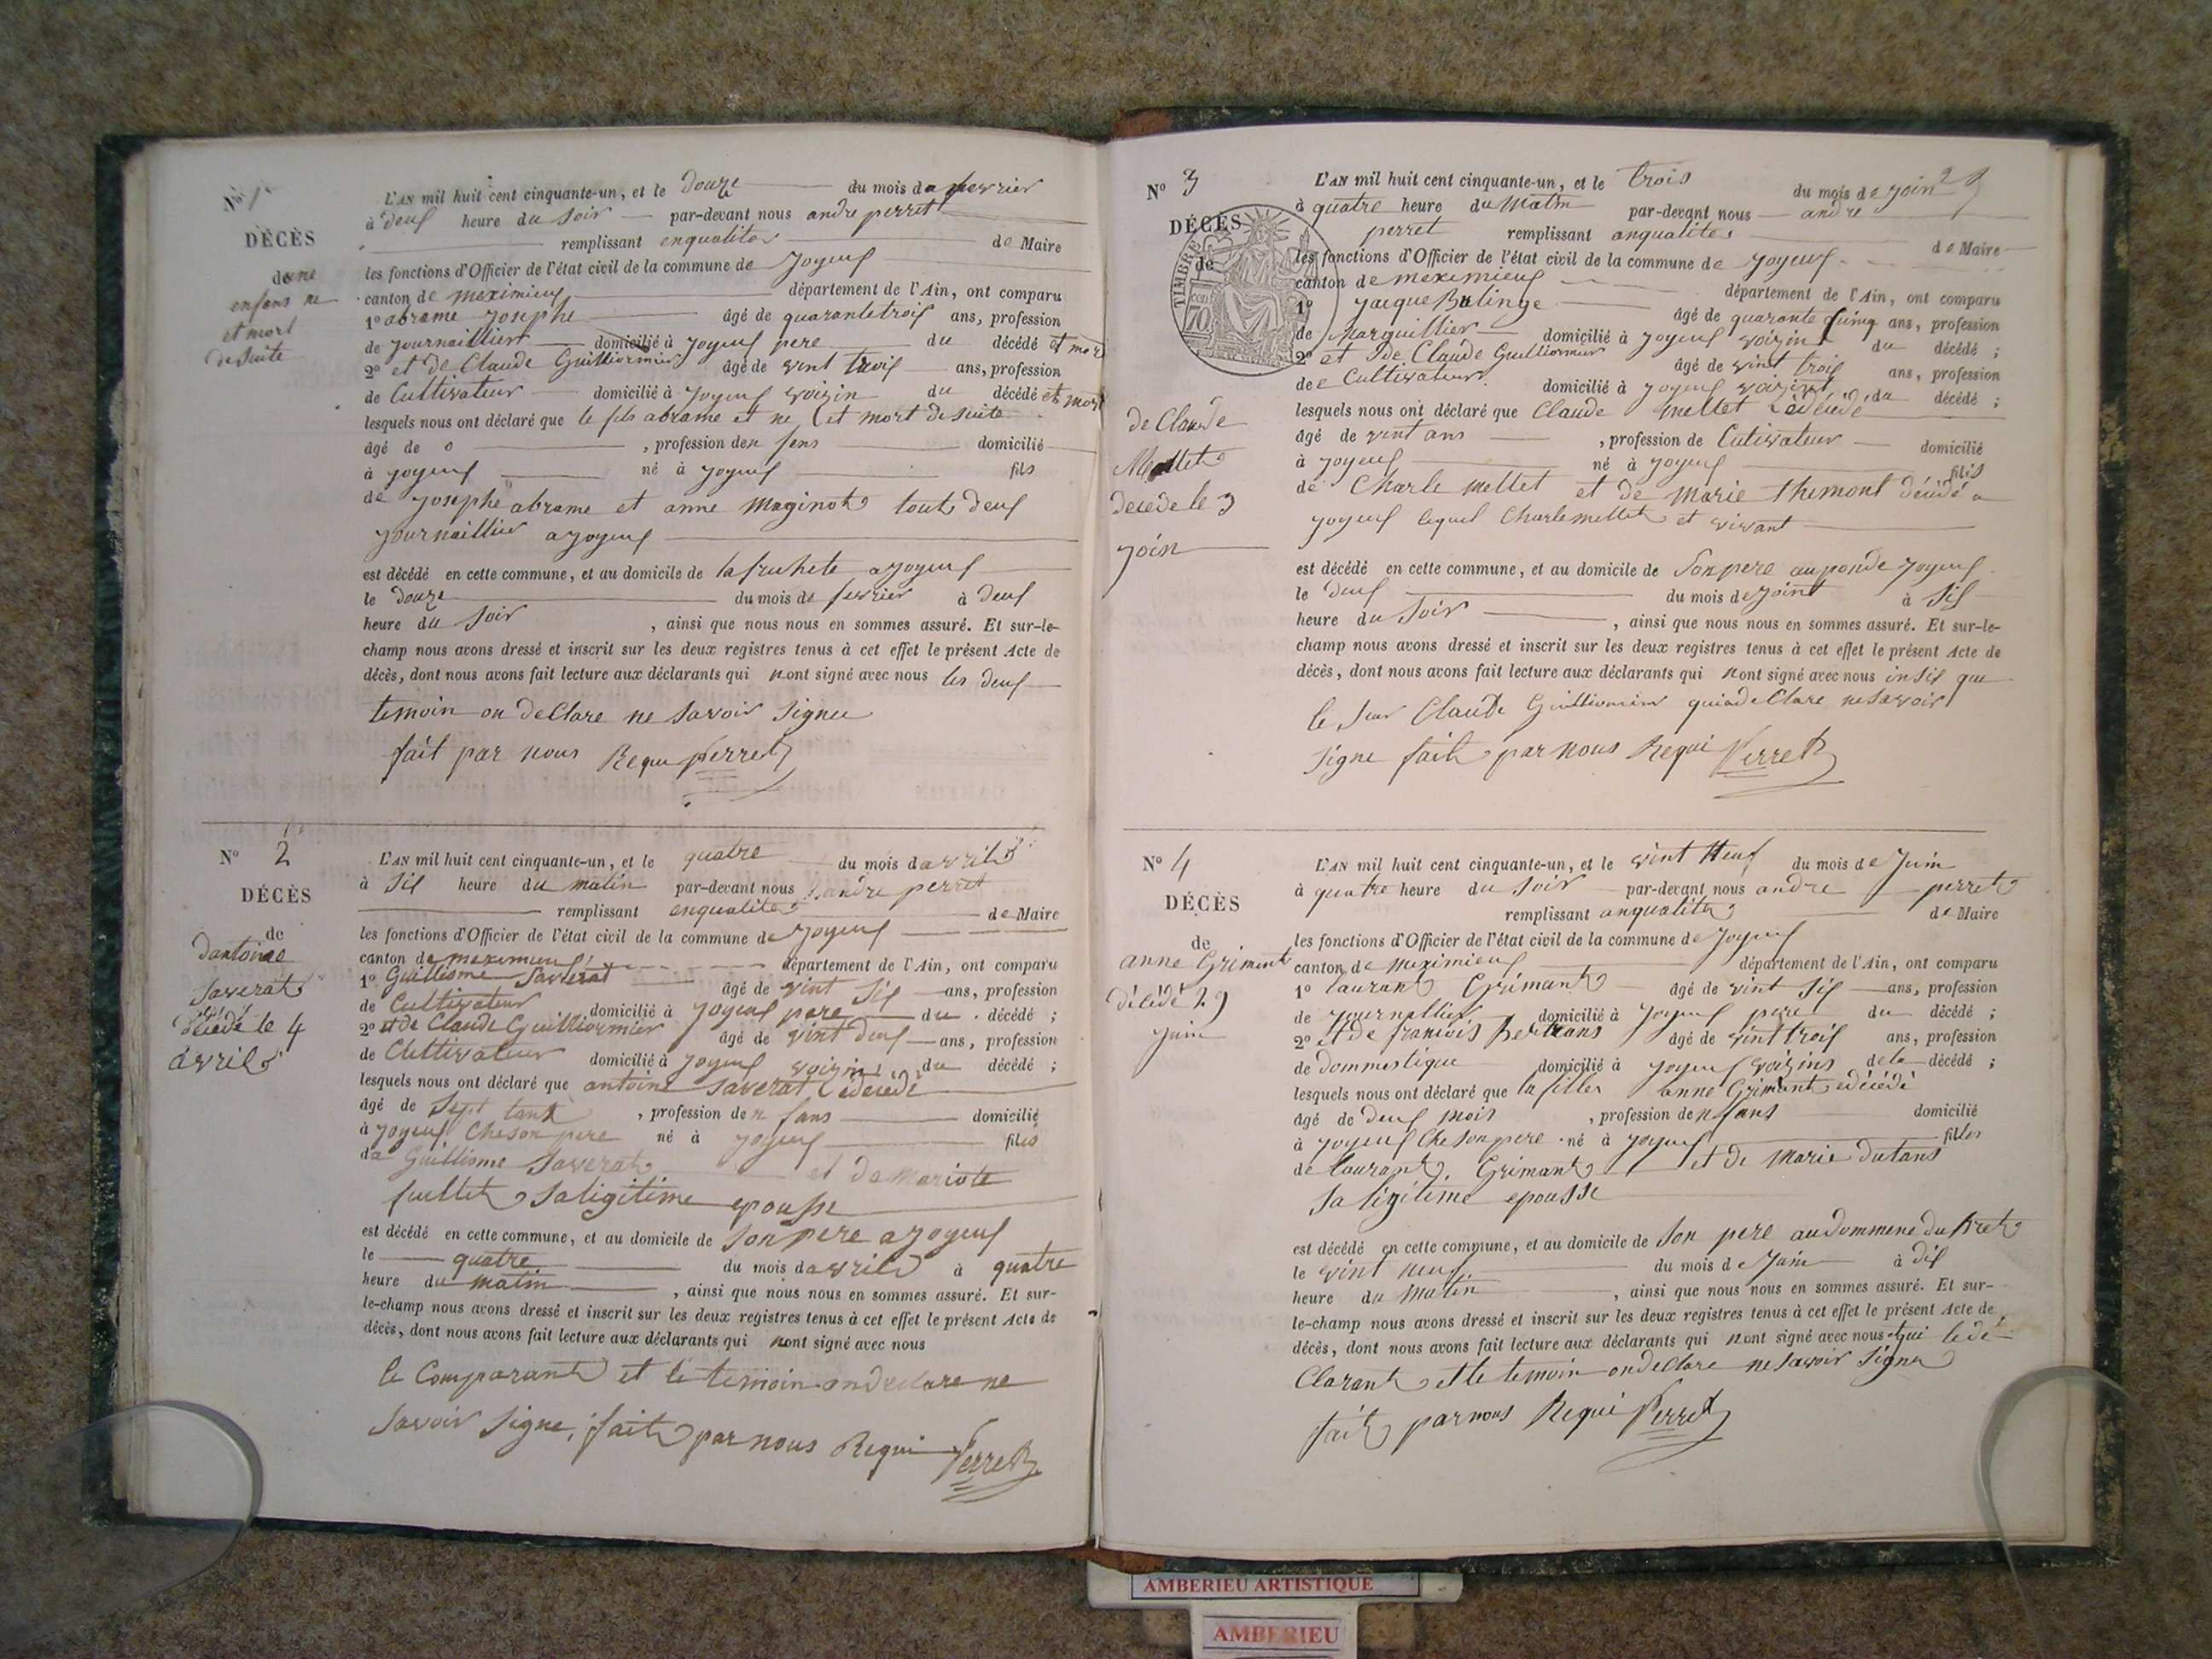 N° 1
DÉCÈS
de ne
enfans ne
et mort
de suite
L'AN mil huit cent cinquante-un, et le douze du mois de fevrier
à deux heure du soir par-devant nous andre perret
remplissant enqualites de Maire
les fonctions d'Officier de l'état civil de la commune de joyeux
canton de meximieux département de l'Ain, ont comparu
1° abrame josephe âgé de quarante trois ans, profession
de journaillier domicilié à joyeux pere du décédé et mort
2° et de Claude Guilliormier âgé de vint trois ans, profession
de Cultivateur domicilié à joyeux voizin du décédé et mort
lesquels nous ont déclaré que le fils abrame et ne et mort de suite
âgé de 0 , profession den fens domicilié
à joyeux né à joyeux fils
de josephe abrame et anne maginot tout deux
journaillier a joyeux
est décédé en cette commune, et au domicile de a joyeux
le douze du mois de fevrier à deux
heure du soir , ainsi que nous nous en sommes assuré. Et sur-le-
champ nous avons dressé et inscrit sur les deux registres tenus à cet effet le présent Acte de
décès, dont nous avons fait lecture aux déclarants qui nont signé avec nous les deux
temoin on declare ne savoir signer
fait par nous Requi Perret
N° 2
DÉCÈS
de
dantoine
Saverat
décédé le 4
avril
L'AN mil huit cent cinquante-un, et le quatre du mois davril
à six heure du matin par-devant nous andre perret
remplissant enqualites de Maire
les fonctions d'Officier de l'état civil de la commune de joyeux
canton de meximieux département de l'Ain, ont comparu
1° Guilliome Saverat âgé de vint six ans, profession
de Cultivateur domicilié à joyeux pere du décédé ;
2° et de Claude Guilliormier âgé de vint deux ans, profession
de Cultivateur domicilié à joyeux voizin du décédé ;
lesquels nous ont déclaré que antoine Saverat édécédé
âgé de sept , profession de n fans domicilié
à joyeux Cheson pere né à joyeux fils
de Guilliome Saverat et de mariote
fuillet saligitime epousse
est décédé en cette commune, et au domicile de son pere a joyeux
le quatre du mois davril à quatre
heure du matin , ainsi que nous nous en sommes assuré. Et sur-
le-champ nous avons dressé et inscrit sur les deux registres tenus à cet effet le présent Acte de
décès, dont nous avons fait lecture aux déclarants qui nont signé avec nous
le Comparant et le temoin on declare ne
savoir signe, fait par nous Requi Perret
N° 3
DÉCÈS
de
TIMBRE
70
de Claude
Mellet
decede le 3
join
L'AN mil huit cent cinquante-un, et le trois du mois de join
à quatre heure du matin par-devant nous andre
perret remplissant anqualites de Maire
les fonctions d'Officier de l'état civil de la commune de joyeux
canton de meximieux département de l'Ain, ont comparu
1° jacque Bulinge âgé de quarante cinq ans, profession
de Marguillier domicilié à joyeux voizin du décédé ;
2° et de Claude Guilliormier âgé de vint trois ans, profession
de Cultivateur domicilié à joyeux voizint du décédé ;
lesquels nous ont déclaré que Claude mellet édécédé
âgé de vint ans , profession de Cutivateur domicilié
à joyeux né à joyeux fils
de Charle mellet et de marie themont décédé a
joyeux lequel Charle mellet et vivant
est décédé en cette commune, et au domicile de son pere auponde joyeux
le deux du mois de joint à six
heure du soir , ainsi que nous nous en sommes assuré. Et sur-le-
champ nous avons dressé et inscrit sur les deux registres tenus à cet effet le présent Acte de
décès, dont nous avons fait lecture aux déclarants qui nont signé avec nous insil que
le sieur Claude Guilliormier quiadeClare nesavoir
signe fait par nous Requi Perret
N° 4
DÉCÈS
de
anne Grimant
décédé 29
juin
L'AN mil huit cent cinquante-un, et le vint neuf du mois de Juin
à quatre heure du soir par-devant nous andre perret
remplissant anqualites de Maire
les fonctions d'Officier de l'état civil de la commune de joyeux
canton de meximieux département de l'Ain, ont comparu
1° laurant Grimant âgé de vint six ans, profession
de journallier domicilié à joyeux pere du décédé ;
2° et de francois Bertrans âgé de vint trois ans, profession
de dommestique domicilié à joyeux voizins de la décédé ;
lesquels nous ont déclaré que la filles anne Grimant édécédé
âgé de deux mois , profession de nfans domicilié
à joyeux Cheson pere né à joyeux filles
de laurant Grimant et de marie dutans
sa ligitime epousse
est décédé en cette commune, et au domicile de son pere audommene du
le vint neuf du mois de Juin à dix
heure du matin , ainsi que nous nous en sommes assuré. Et sur-
le-champ nous avons dressé et inscrit sur les deux registres tenus à cet effet le présent Acte de
décès, dont nous avons fait lecture aux déclarants qui nont signé avec nous qui ledé
Clarant et le temoin ondeclare ne savoir signer
fait par nous Requi Perret
AMBERIEU ARTISTIQUE
AMBERIEU